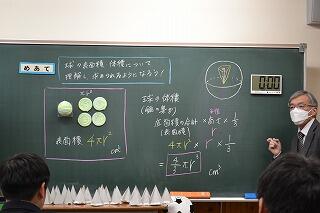 めあて
球の表面積、体積について
理解し、求められるようになろう!
πr²
表面積 4πr² cm²
球の体積
(錐の集まり)
底面積の合計 × 高さ × 1/3
(表面積)
半径
r
4πr² × r × 1/3
= 4/3 πr³ cm³
0:00